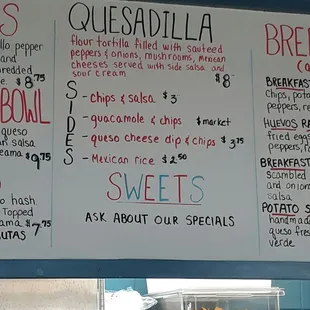 S
llo pepper
and
hredded
e $8.75
BOWL
queso
an salsa
eama $9.75
o hash.
Topped
ama $7.75
UTAS
QUESADILLA
flour tortilla filled with sauteed
peppers & onions, mushrooms, Mexican
cheeses served with side salsa and
sour cream $8
SIDES
- chips & salsa $3
- guacamole & chips $market
- queso cheese dip & chips $3.75
- Mexican rice $2.50
SWEETS
ASK ABOUT OUR SPECIALS
BRE
BREAKFAST
Chips, pota
peppers, re
HUEVOS RA
fried eggs
peppers, ro
BREAKFAST
Scambled
and onion
salsa
POTATO S
handmade
queso fres
verde